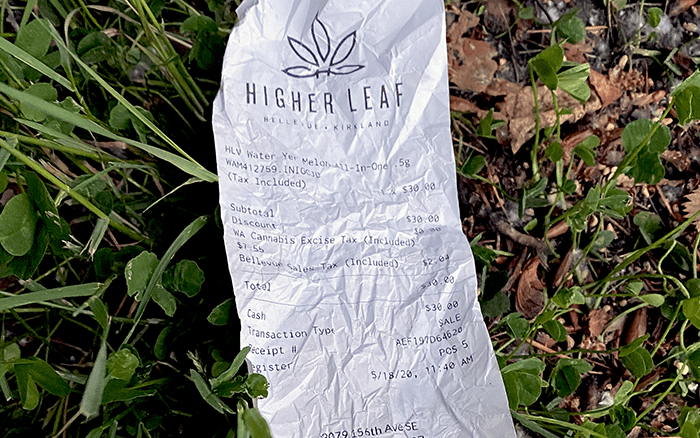 HIGHER LEAF
BELLEVUE • KIRKLAND
HLV Water Yer Melon All-In-One .5g
(Tax Included)
1 x $30.00
Subtotal $30.00
Discount $0.00
WA Cannabis Excise Tax (Included)
$7.56
Bellevue Sales Tax (Included) $2.04
Total $30.00
Cash $30.00
Transaction Type SALE
Receipt # AEF197D64620
Register POS 5
5/18/20, 11:40 AM
2079 156th Ave SE